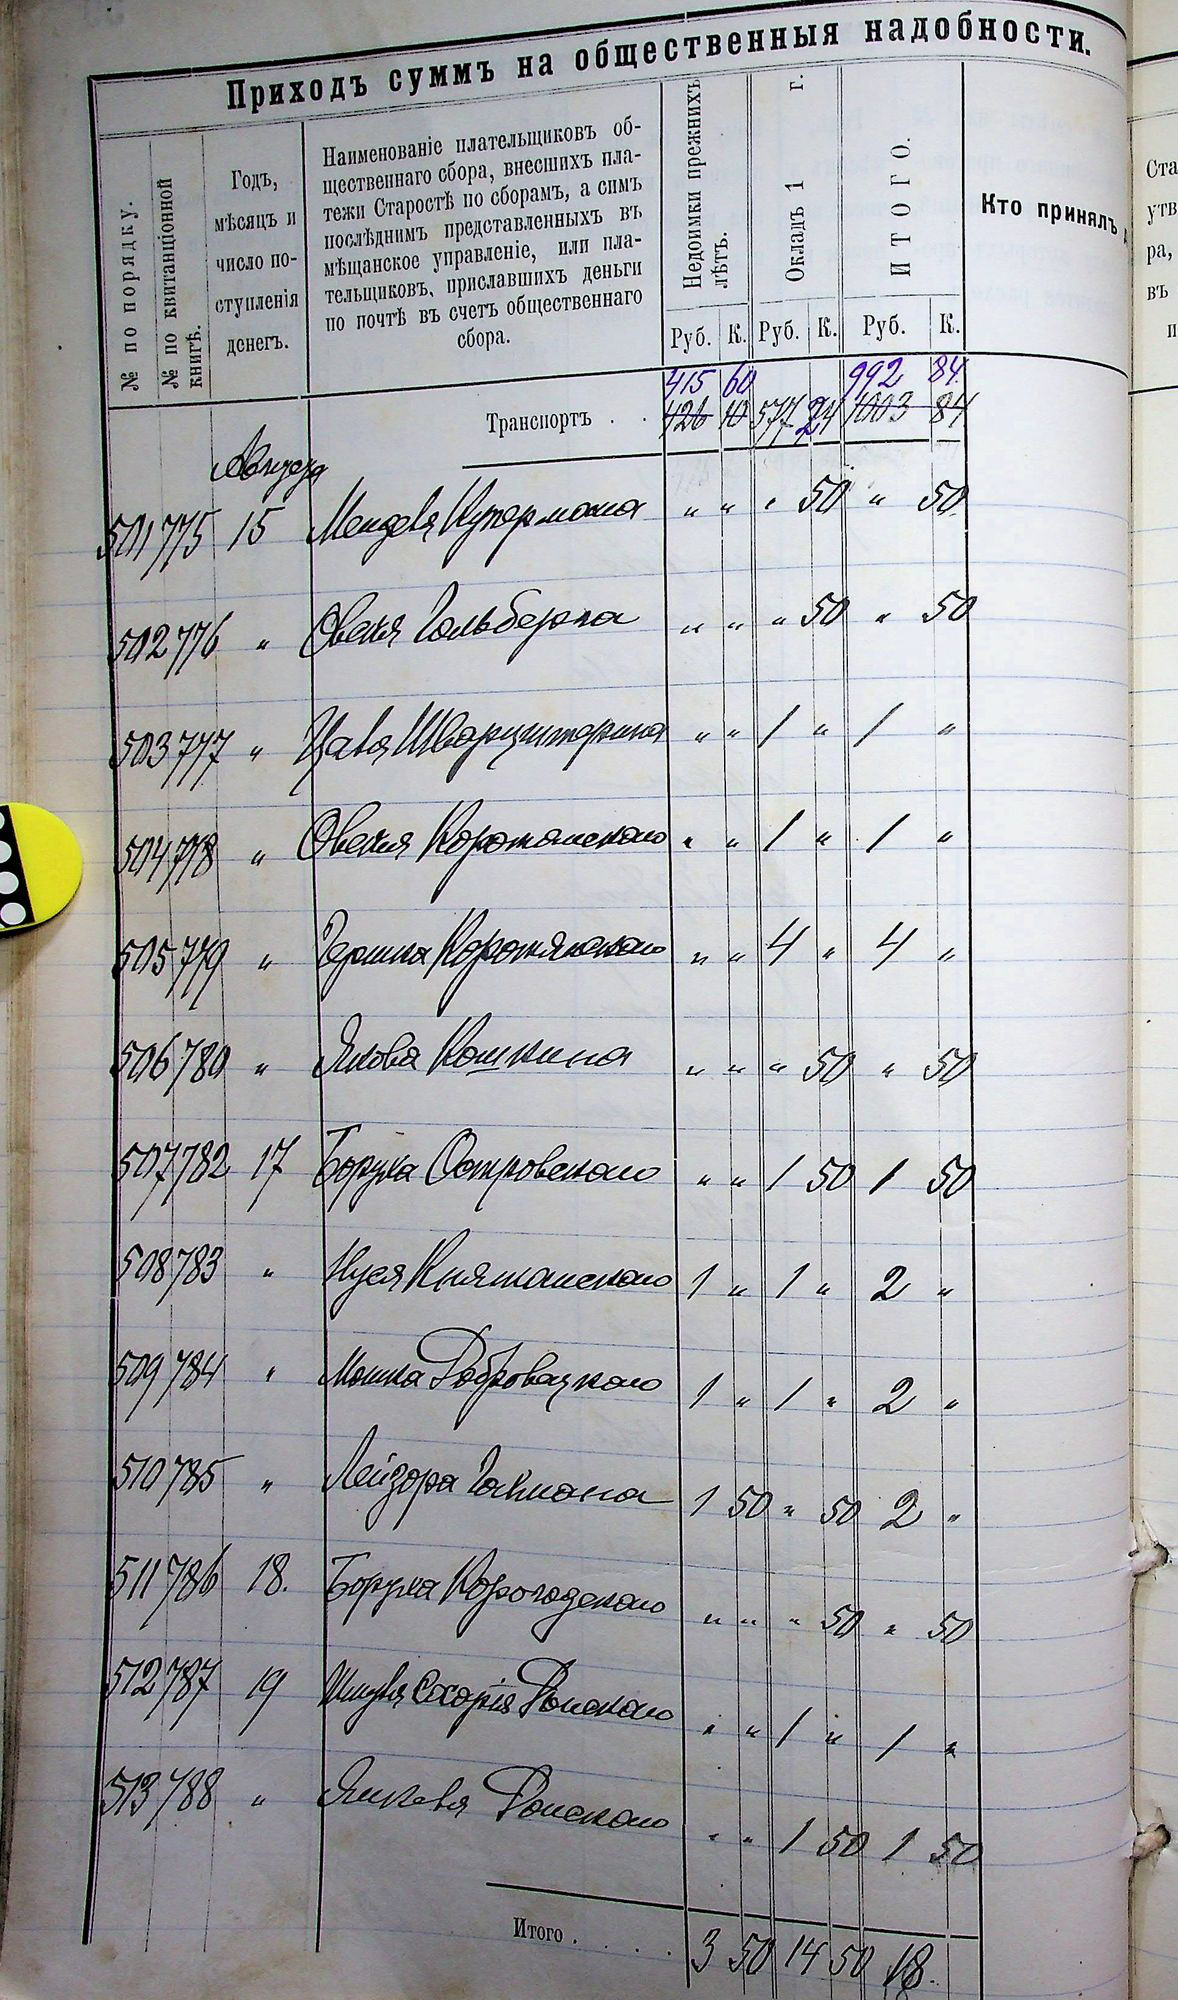 Приходъ суммъ на общественныя надобности.
№ по порядку.
№ по квитанціонной
книгѣ.
Годъ,
мѣсяцъ и
число по-
ступленія
денегъ.
Наименованіе плательщиковъ об-
щественнаго сбора, внесшихъ пла-
тежи Старостѣ по сборамъ, а симъ
послѣднимъ представленныхъ въ
мѣщанское управленіе, или пла-
тельщиковъ, приславшихъ деньги
по почтѣ въ счетъ общественнаго
сбора.
Недоимки прежнихъ
лѣтъ.
Окладъ 1 г.
ИТОГО.
Кто принялъ
Руб. К. Руб. К. Руб. К.
415 60 992 84
Транспортъ . . 426 10 577 24 1003 84
Августа
501 775 15 Менделя Купермана " " " 50 " 50
502 776 " Овсея Гольберга " " " 50 " 50
503 777 " Цаля Шварцштерна " " 1 " 1 "
504 778 " Овсея Коротянского " " 1 " 1 "
505 779 " Гершка Коротянского " " 4 " 4 "
506 780 " Якова Кошкина " " " 50 " 50
507 782 17 Боруха Островского " " 1 50 1 50
508 783 " Нуся Княжанского 1 " 1 " 2 "
509 784 " Мошка Добровацкого 1 " 1 " 2 "
510 785 " Лейзора Гакмана 1 50 " 50 2 "
511 786 18. Боруха Корогодского " " " 50 " 50
512 787 19 Шмуля Сахорія Донского " " 1 " 1 "
513 788 " Янкеля Донского " " 1 50 1 50
Итого . . . . 3 50 14 50 18
Ста
утв
ра,
въ
п